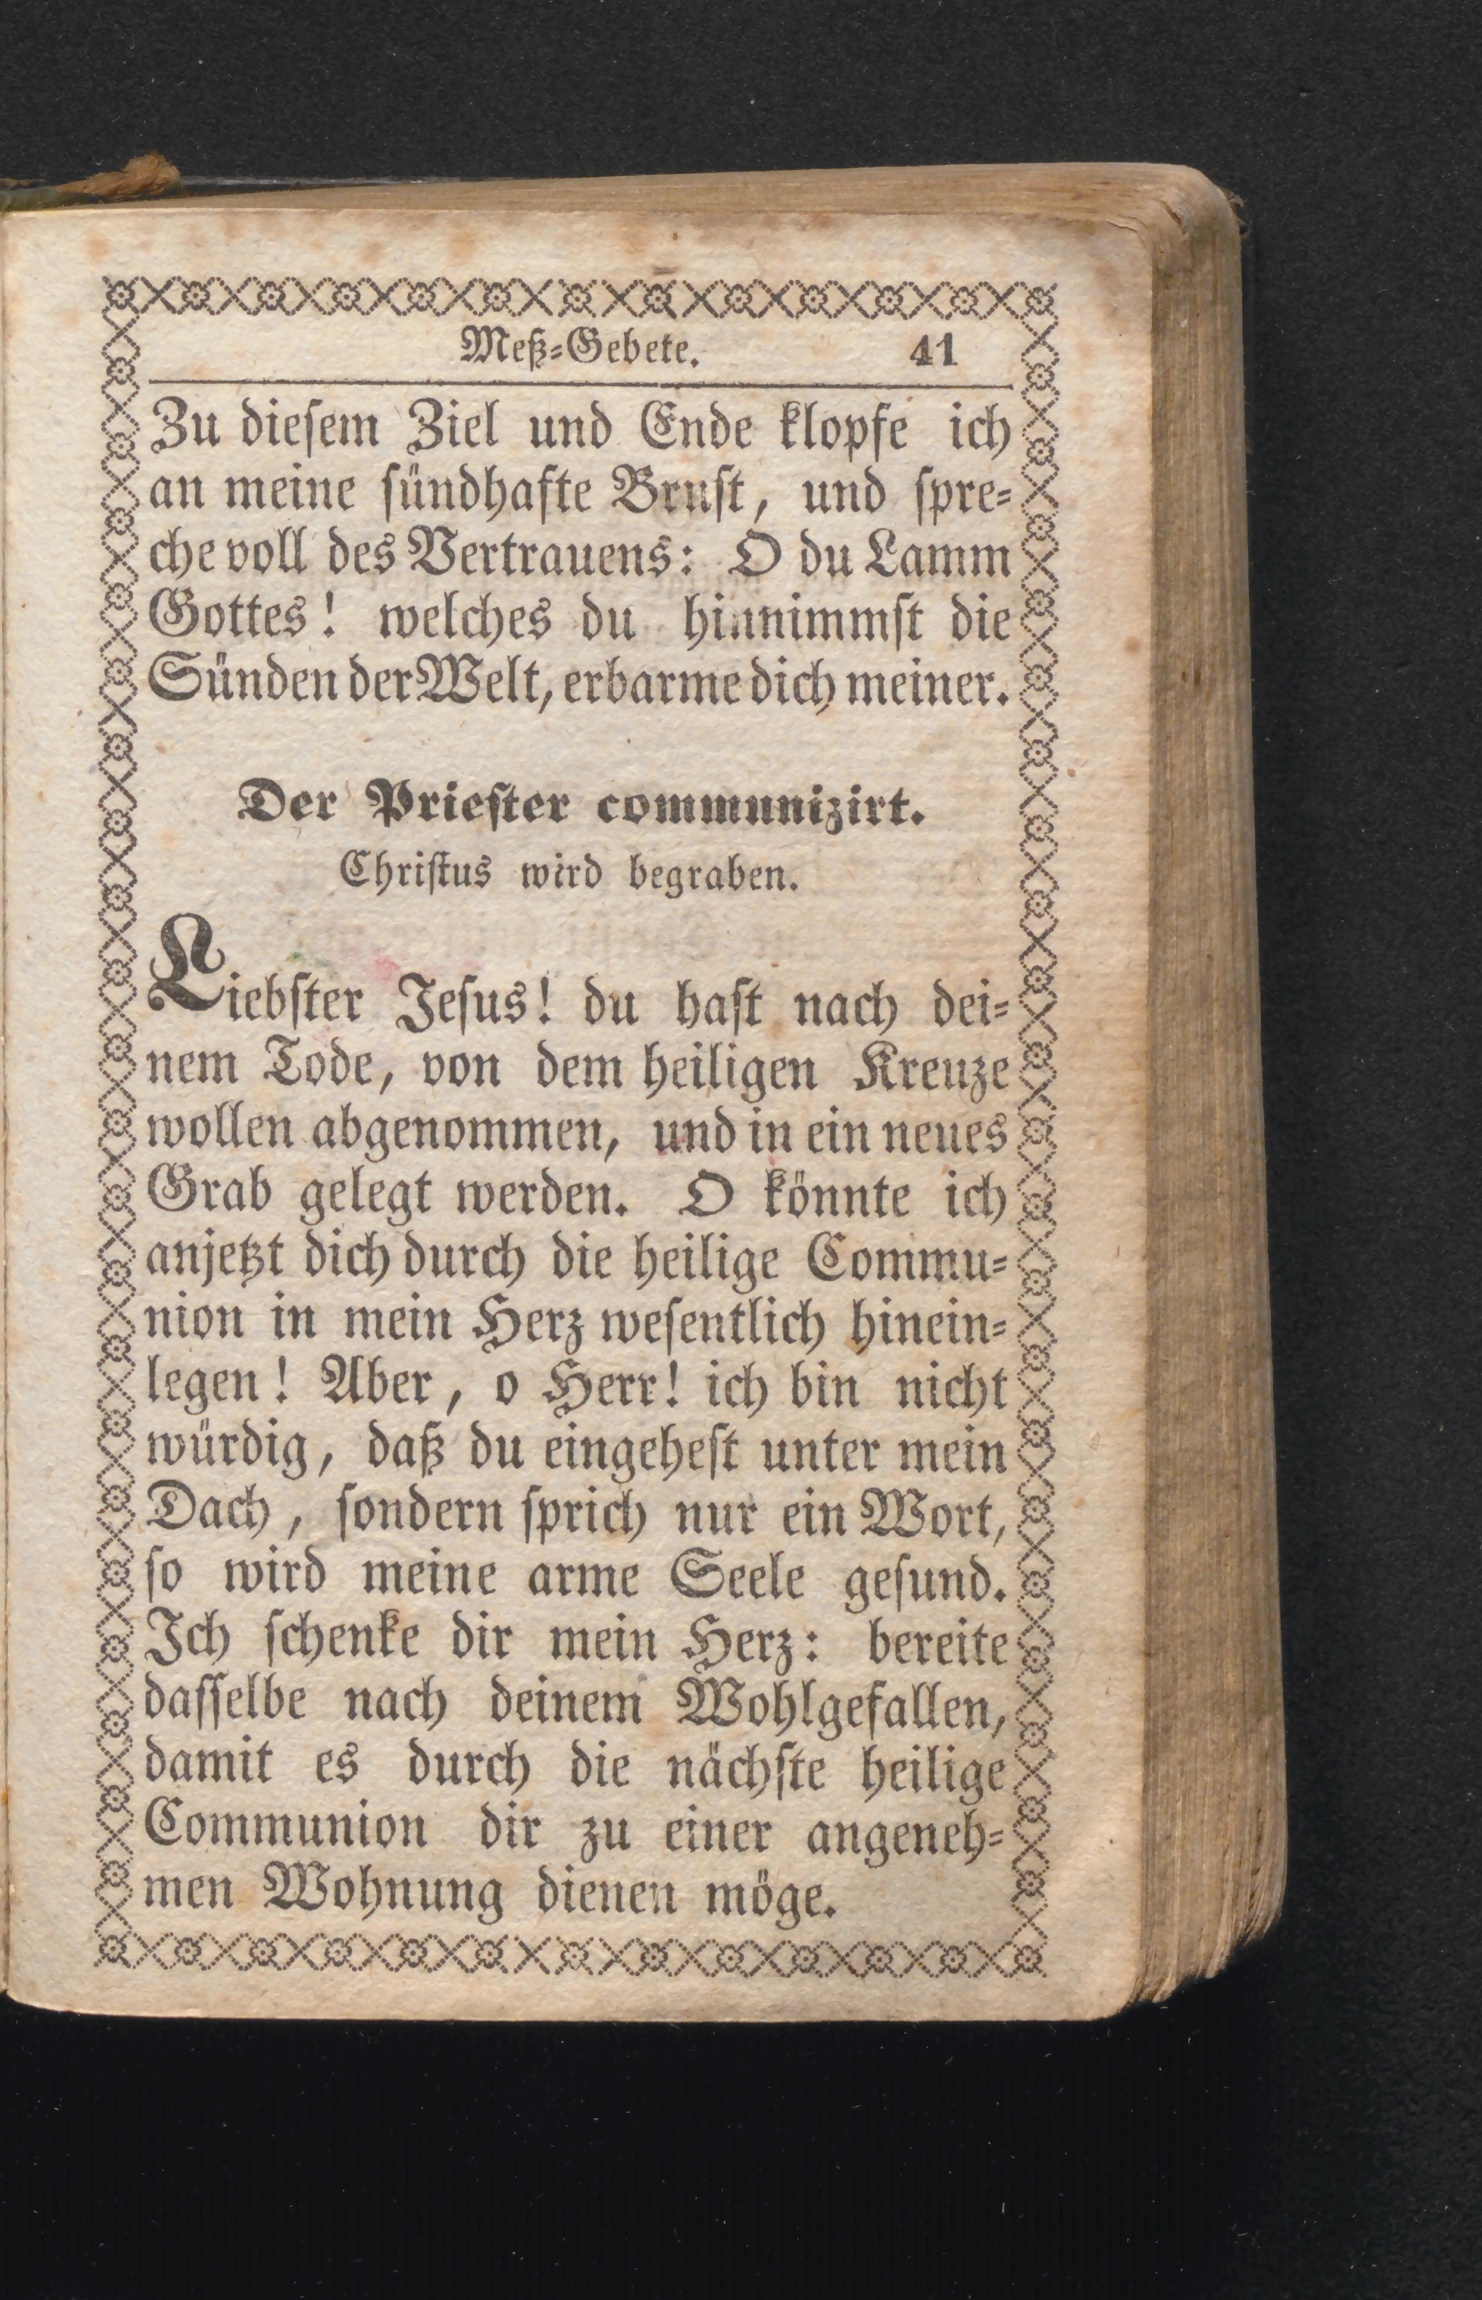 Meß-Gebete. 41
Zu dieſem Ziel und Ende klopfe ich
an meine ſündhafte Bruſt, und ſpre-
che voll des Vertrauens: O du Lamm
Gottes! welches du hinnimmſt die
Sünden der Welt, erbarme dich meiner.
Der Prieſter communizirt.
Chriſtus wird begraben.
Liebſter Jeſus! du haſt nach dei-
nem Tode, von dem heiligen Kreuze
wollen abgenommen, und in ein neues
Grab gelegt werden. O könnte ich
anjetzt dich durch die heilige Commu-
nion in mein Herz weſentlich hinein-
legen! Aber, o Herr! ich bin nicht
würdig, daß du eingeheſt unter mein
Dach, ſondern ſprich nur ein Wort,
ſo wird meine arme Seele geſund.
Ich ſchenke dir mein Herz: bereite
daſſelbe nach deinem Wohlgefallen,
damit es durch die nächſte heilige
Communion dir zu einer angeneh-
men Wohnung dienen möge.